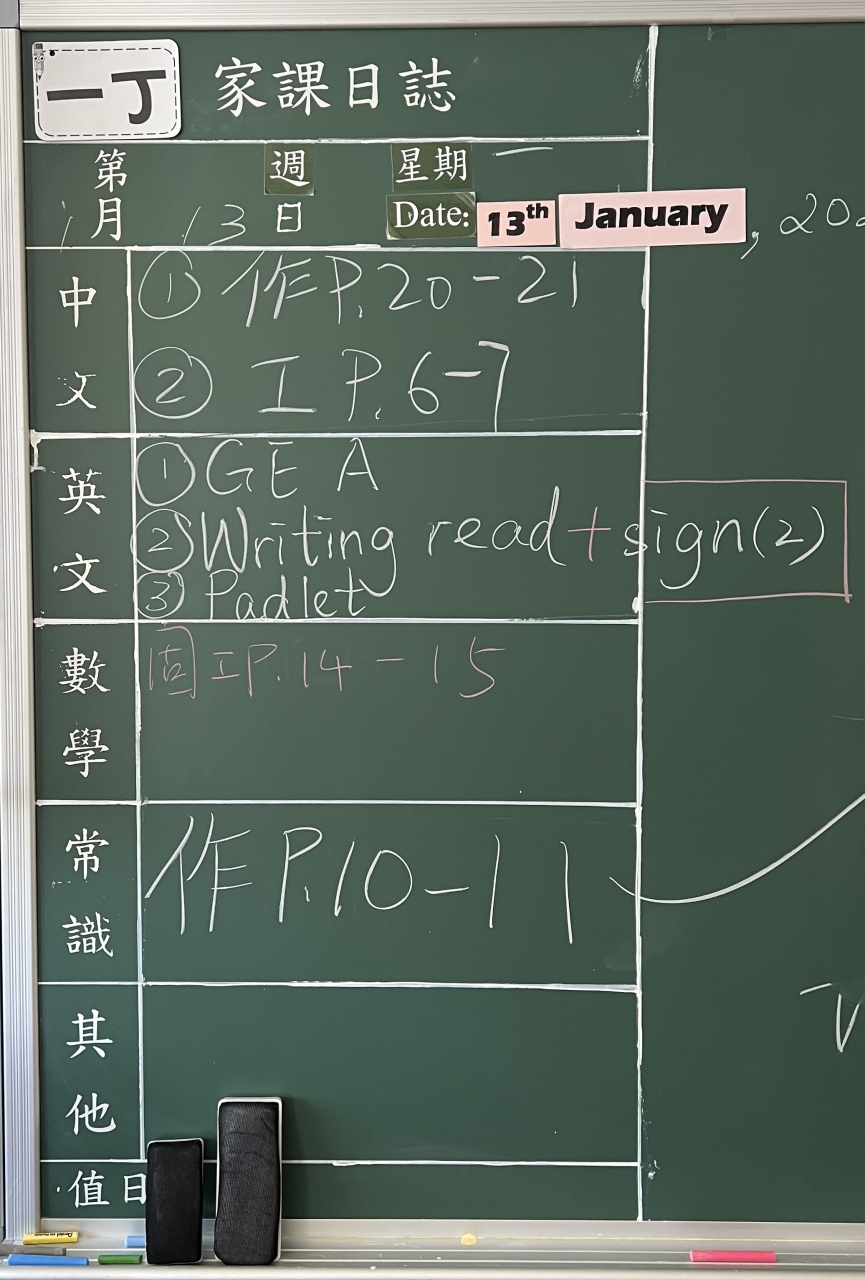 一丁 家課日誌
第 週 星期 一
1月 13日 Date: 13th January, 202
中文
① 作P.20-21
② 工 P.6-7
英文
① GE A
② Writing read + sign(2)
③ Padlet
數學
固工P.14-15
常識
作P.10-11
其他
值日